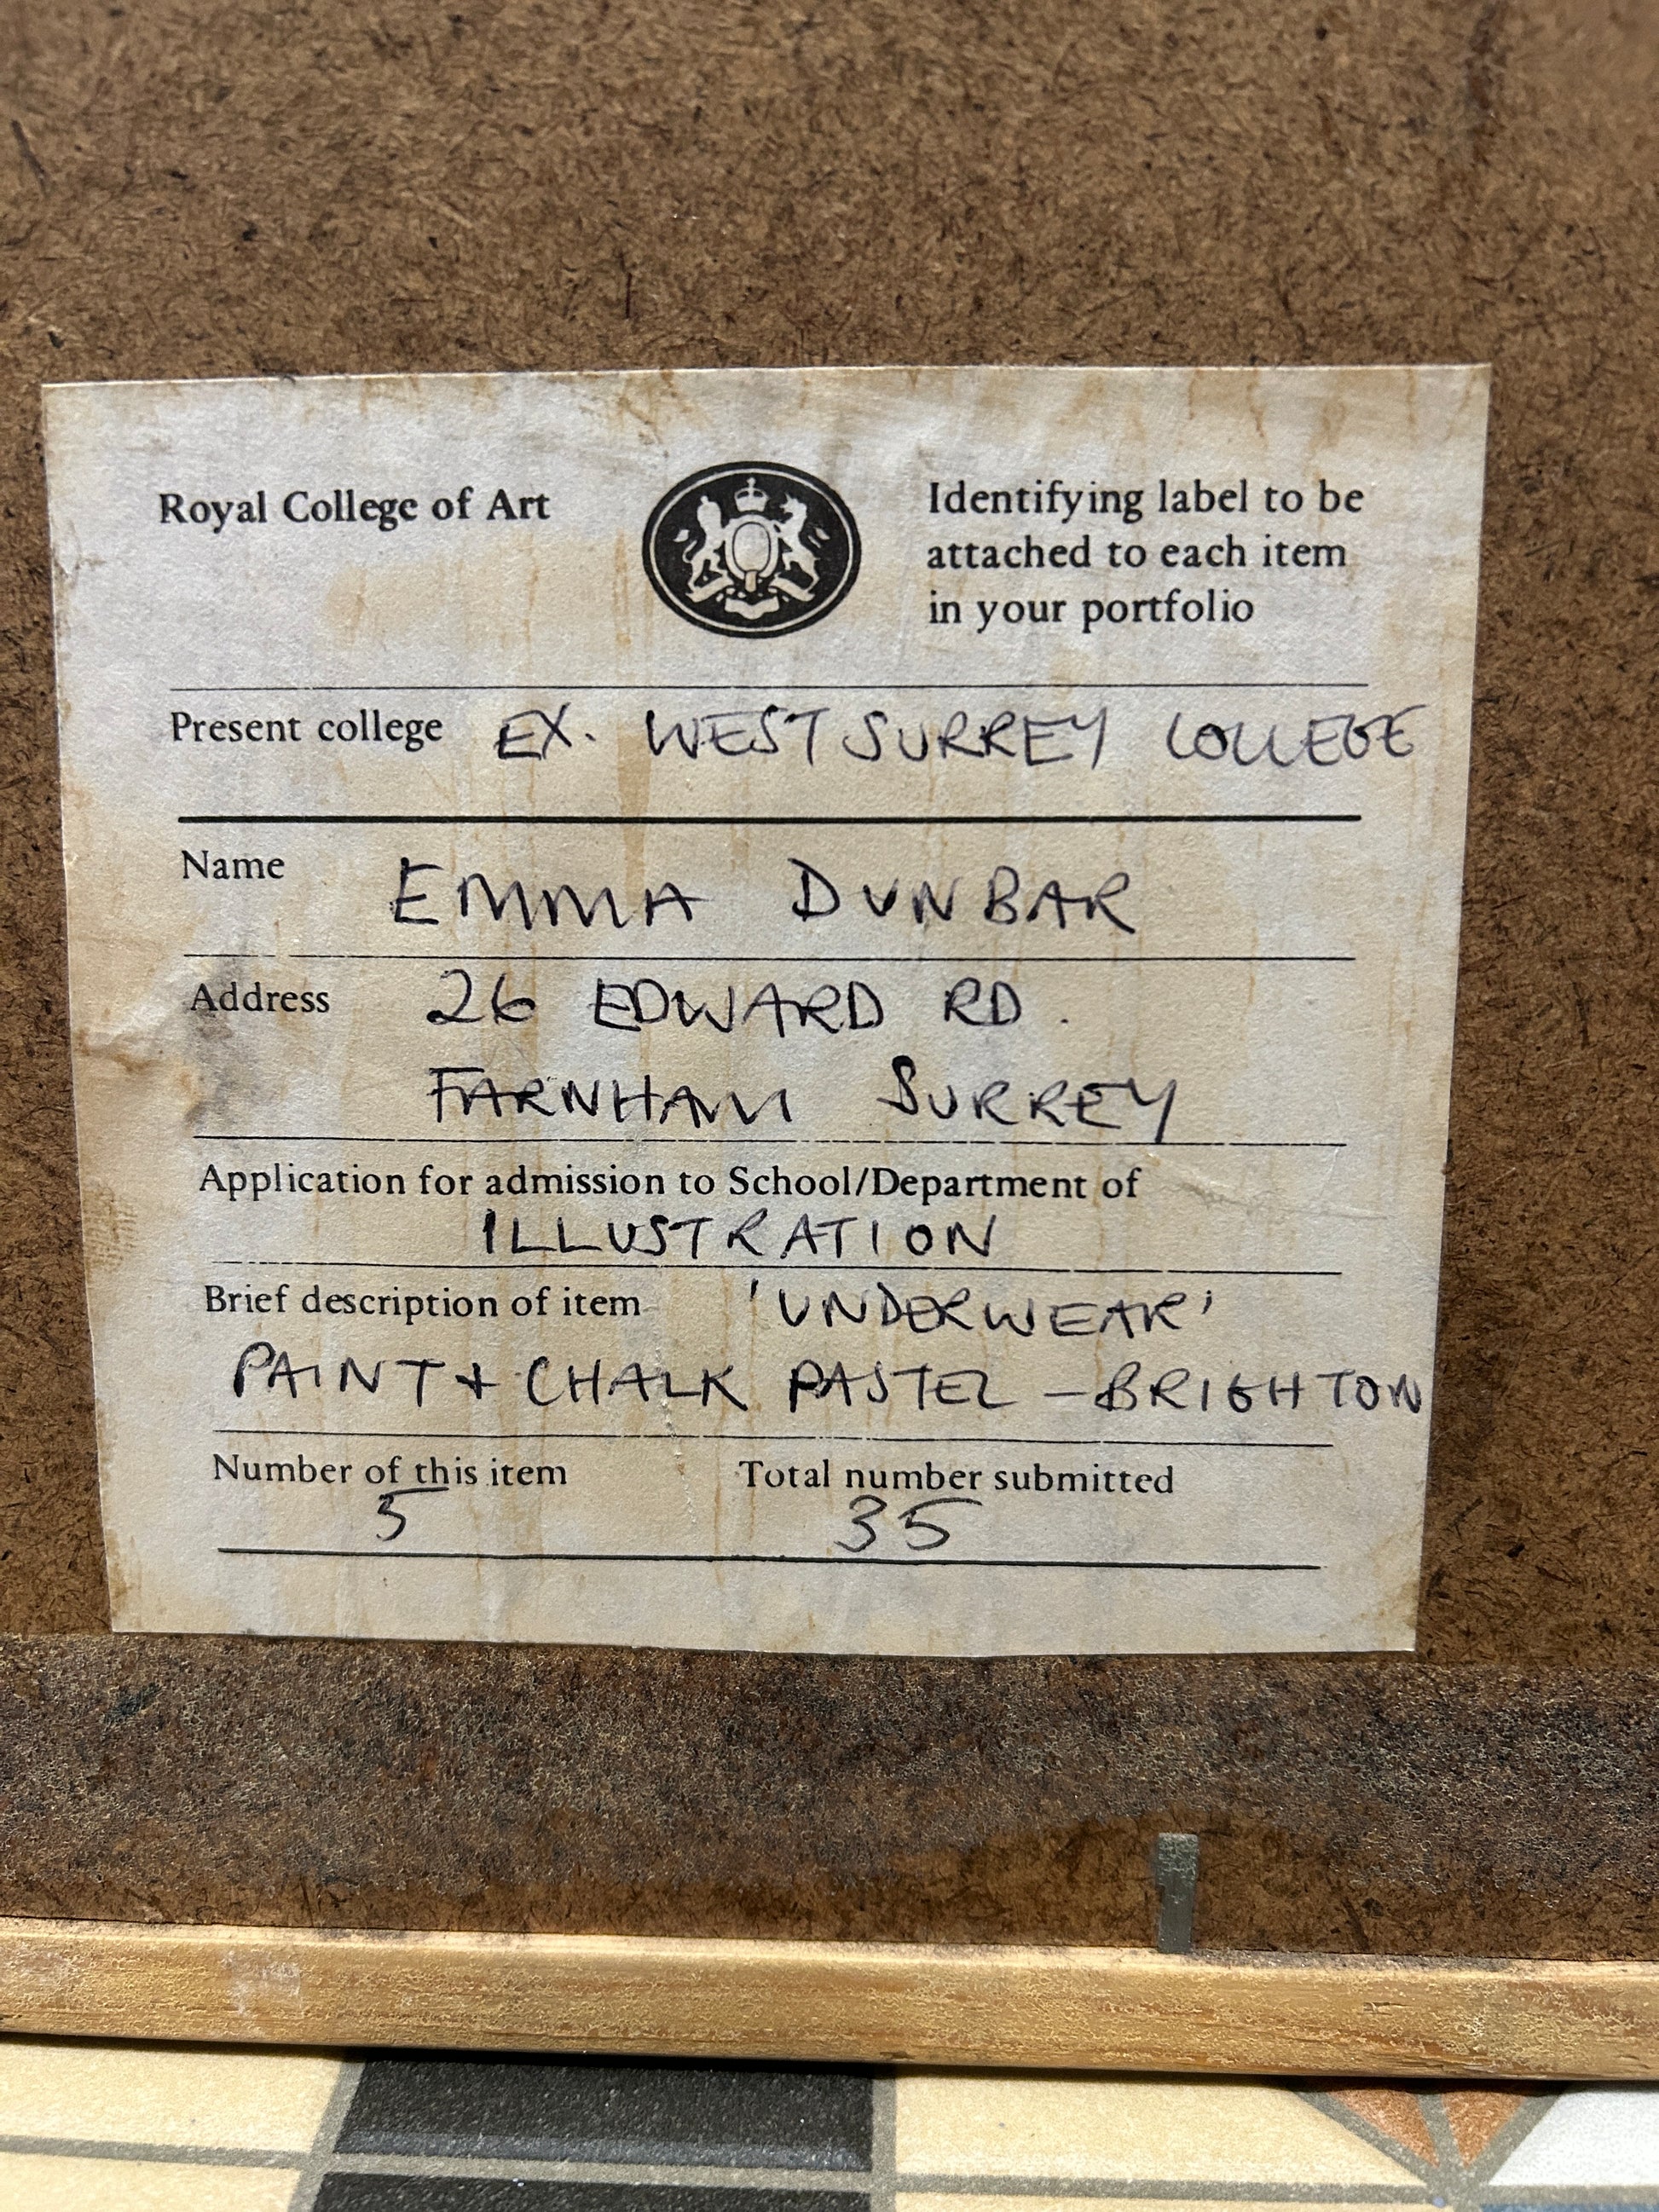 Royal College of Art
Identifying label to be
attached to each item
in your portfolio
Present college EX. WEST SURREY COLLEGE
Name EMMA DUNBAR
Address 26 EDWARD RD.
FARNHAM SURREY
Application for admission to School/Department of
ILLUSTRATION
Brief description of item 'UNDERWEAR'
PAINT + CHALK PASTEL - BRIGHTON
Number of this item Total number submitted
5 35